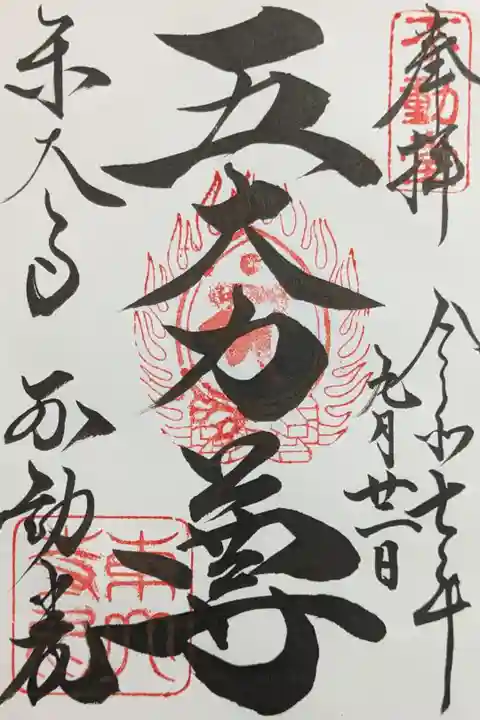 奉拝
令和七年
九月廿一日
五大力尊
東大寺 不動堂